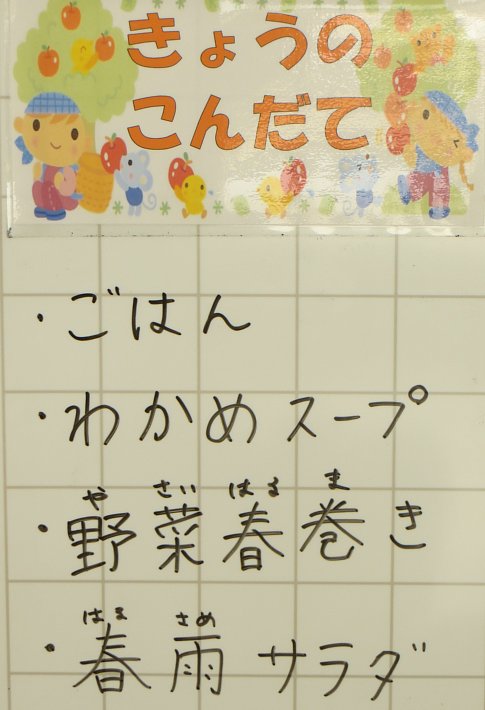 きょうの
こんだて
・ごはん
・わかめスープ
や さい はる ま
・野菜春巻き
はる さめ
・春雨サラダ